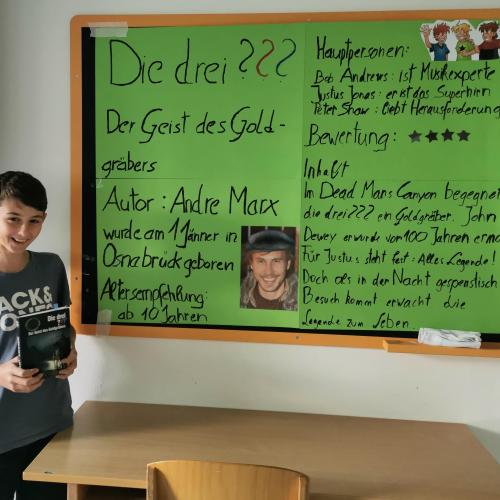 Die drei ???
Der Geist des Gold-
gräbers
Autor : Andre Marx
wurde am 1 Jänner in
Osnabrück geboren
Altersempfehlung:
ab 10 Jahren
Hauptpersonen:
Bob Andrews: ist Musikexperte
Justus Jonas: er ist das Superhirn
Peter Shaw: liebt Herausforderung
Bewertung: ★★★★
Inhalt
Im Dead Mans Canyon begegnet
die drei ??? ein Goldgräber. John
Dewey er wurde vor 100 Jahren
Für Justus steht fest: Alles Legende!
Doch als in der Nacht gespenstisch
Besuch kommt erwacht die
Legende zum Leben.
Die drei
???